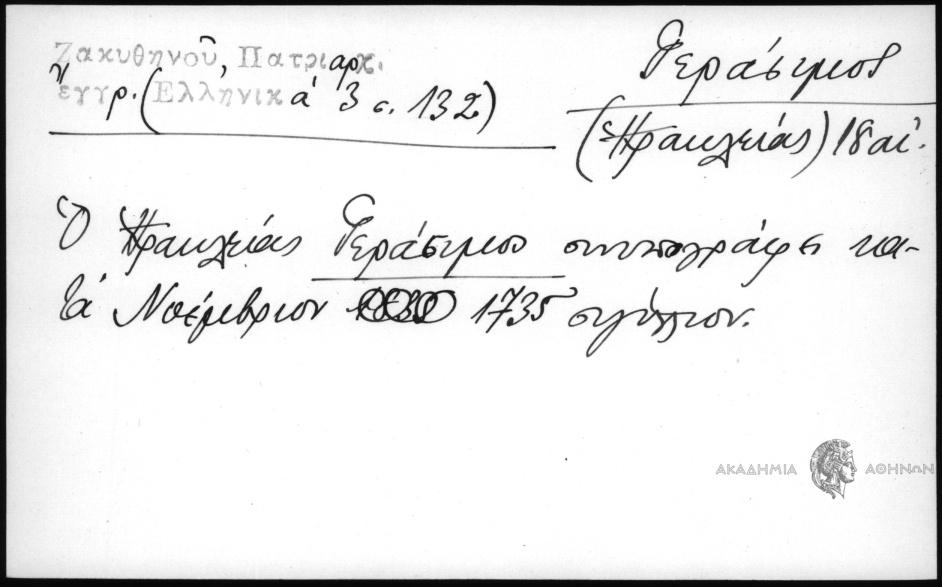 Ζακυθηνοῦ, Πατριαρχ.
ἔγγρ. (Ἑλληνικά 3 σ. 132)
Γεράσιμος
(Ἡρακλείας) 18 αἰ.
Ὁ Ἡρακλείας Γεράσιμος συνυπογράφει κα-
τά Νοέμβριον 1735 σιγίλλιον.
ΑΚΑΔΗΜΙΑ ΑΘΗΝΩΝ